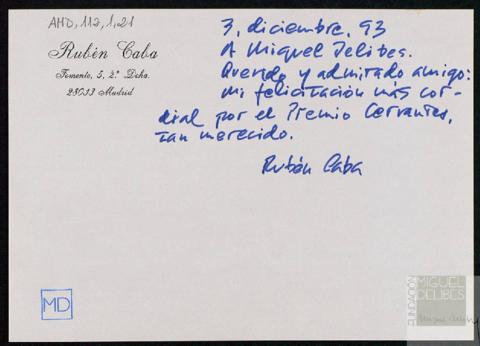 AMD, 112, 1, 21
Rubén Caba
Fomento, 5, 2.º Dcha.
28013 Madrid
3, diciembre, 93
A Miguel Delibes.
Querido y admirado amigo:
mi felicitación más cor-
dial por el Premio Cervantes,
tan merecido.
Rubén Caba
MD
FUNDACIÓN
MIGUEL
DELIBES